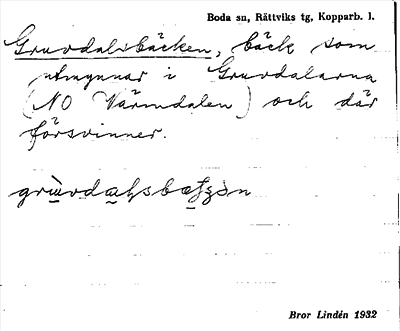 Boda sn, Rättviks tg, Kopparb. l.
Gruvdalsbäcken, bäck som
utmynnar i Gruvdalarna
(NO Värmdalen) och där
försvinner.
Bror Lindén 1932